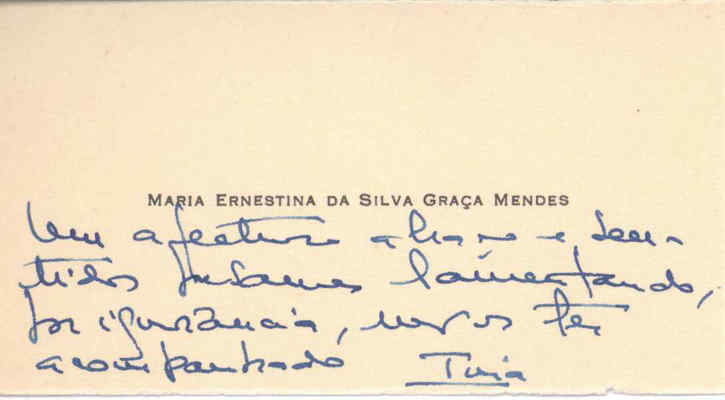 MARIA ERNESTINA DA SILVA GRAÇA MENDES
Um afectuoso abraço e sen-
tidos pêsames lamentando,
por ignorância, não os ter
acompanhado